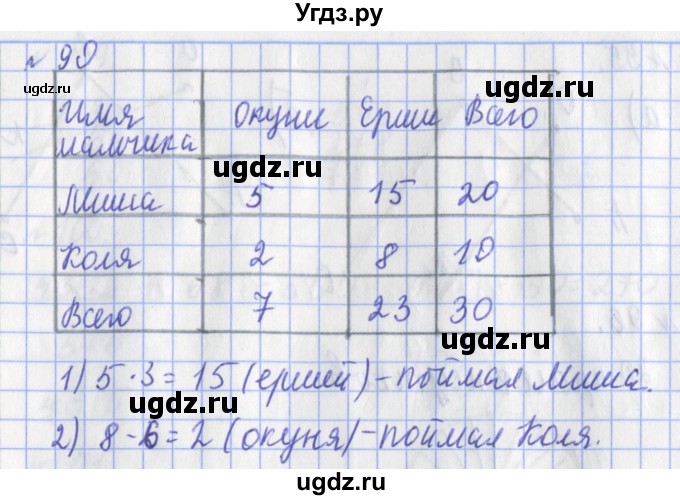 Угдз.ру
№ 90
ugdz.ru ugdz.ru
Имя мальчика Окуни Ерши Всего
ugdz.ru ugdz.ru
Миша 5 15 20
Коля 2 8 10
ugdz.ru
Всего 7 23 30
ugdz.ru ugdz.ru
1) 5 · 3 = 15 (ершей) - поймал Миша.
ugdz.ru
2) 8 - 6 = 2 (окуня) - поймал Коля.
ugdz.ru ugdz.ru